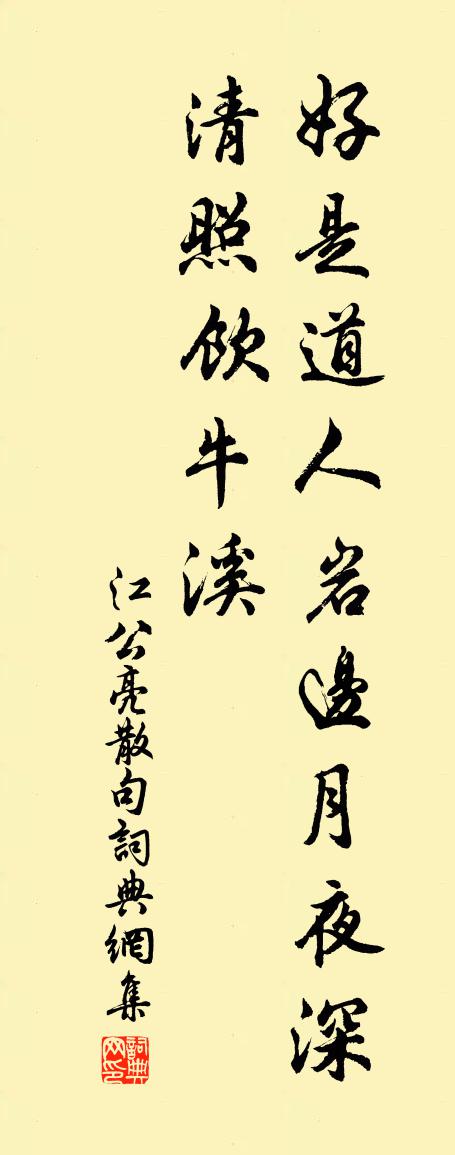 好是道人岩邊月夜深
清照飲牛溪
江公亮散句詞典網集
詞典网印